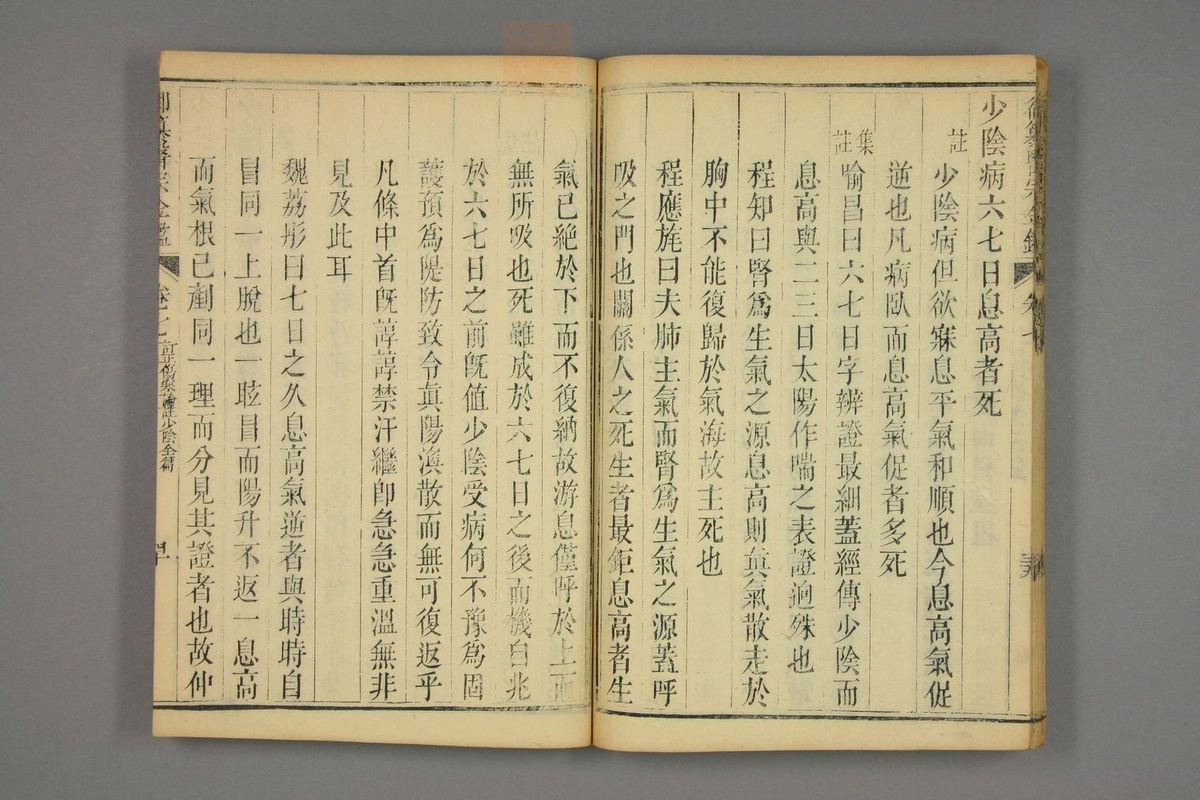 少陰病六七日息高者死
註
少陰病但欲寐息平氣和順也今息高氣促
逆也凡病臥而息高氣促者多死
集註
喻昌曰六七日字辨證最細蓋經傳少陰而
息高與二三日太陽作喘之表證逈殊也
程知曰腎爲生氣之源息高則眞氣散走於
胸中不能復歸於氣海故主死也
程應旄曰夫肺主氣而腎爲生氣之源蓋呼
吸之門也關係人之死生者最鉅息高者生
氣已絶於下而不復納故游息僅呼於上而
無所吸也死雖成於六七日之後而機自兆
於六七日之前旣値少陰受病何不豫爲固
護預爲隄防致令眞陽渙散而無可復返乎
凡條中首旣諄諄禁汗繼卽急急重溫無非
見及此耳
魏荔彤曰七日之久息高氣逆者與時時自
冒同一上脫也一眩冒而陽升不返一息高
而氣根已剷同一理而分見其證者也故仲
御纂醫宗金鑑 卷七 訂正傷寒論註少陰全篇